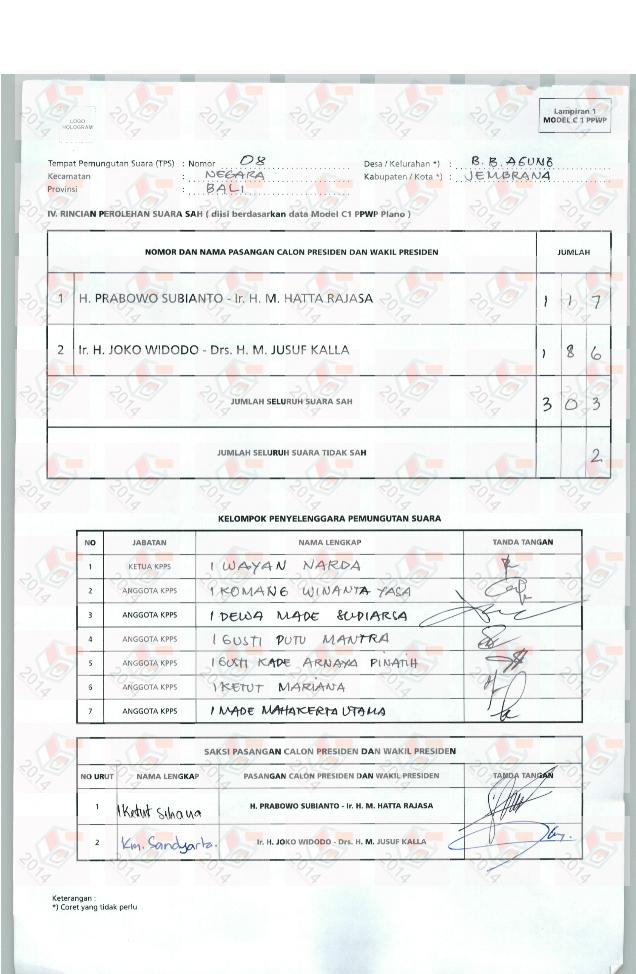 LOGO
HOLOGRAM
Lampiran 1
MODEL C 1 PPWP
Tempat Pemungutan Suara (TPS) : Nomor 08 Desa / Kelurahan *) : B. B. AGUNG
Kecamatan : NEGARA Kabupaten / Kota *) : JEMBRANA
Provinsi : BALI
IV. RINCIAN PEROLEHAN SUARA SAH ( diisi berdasarkan data Model C1 PPWP Plano )
NOMOR DAN NAMA PASANGAN CALON PRESIDEN DAN WAKIL PRESIDEN JUMLAH
1 H. PRABOWO SUBIANTO - Ir. H. M. HATTA RAJASA 1 1 7
2 Ir. H. JOKO WIDODO - Drs. H. M. JUSUF KALLA 1 8 6
JUMLAH SELURUH SUARA SAH 3 0 3
JUMLAH SELURUH SUARA TIDAK SAH 2
KELOMPOK PENYELENGGARA PEMUNGUTAN SUARA
NO JABATAN NAMA LENGKAP TANDA TANGAN
1 KETUA KPPS I WAYAN NARDA
2 ANGGOTA KPPS I KOMANG WINANTA YASA
3 ANGGOTA KPPS I DEWA MADE SUDIARSA
4 ANGGOTA KPPS I GUSTI PUTU MANTRA
5 ANGGOTA KPPS I GUSTI KADE ARNAYA PINATIH
6 ANGGOTA KPPS I KETUT MARIANA
7 ANGGOTA KPPS I MADE MAHAKERTA UTAMA
SAKSI PASANGAN CALON PRESIDEN DAN WAKIL PRESIDEN
NO URUT NAMA LENGKAP PASANGAN CALON PRESIDEN DAN WAKIL PRESIDEN TANDA TANGAN
1 I Ketut Suhana H. PRABOWO SUBIANTO - Ir. H. M. HATTA RAJASA
2 Km. Sandyarta. Ir. H. JOKO WIDODO - Drs. H. M. JUSUF KALLA
Keterangan :
*) Coret yang tidak perlu